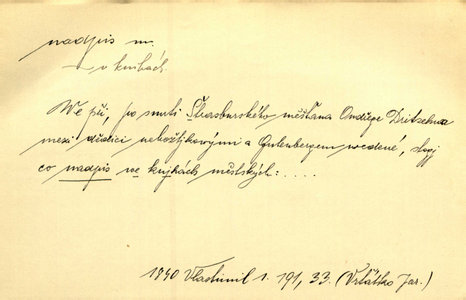 nadpis m.
— v knihách.
We při, po smrti Štrasburského měšťana Ondřeje Dritzehna
mezi dědici nebožtíkovými a Gutenbergem wedené, stojj
co nadpis we knjhách městských: ....
1840 Vlastimil 1. 191, 33. (Vrťátko Jar.)